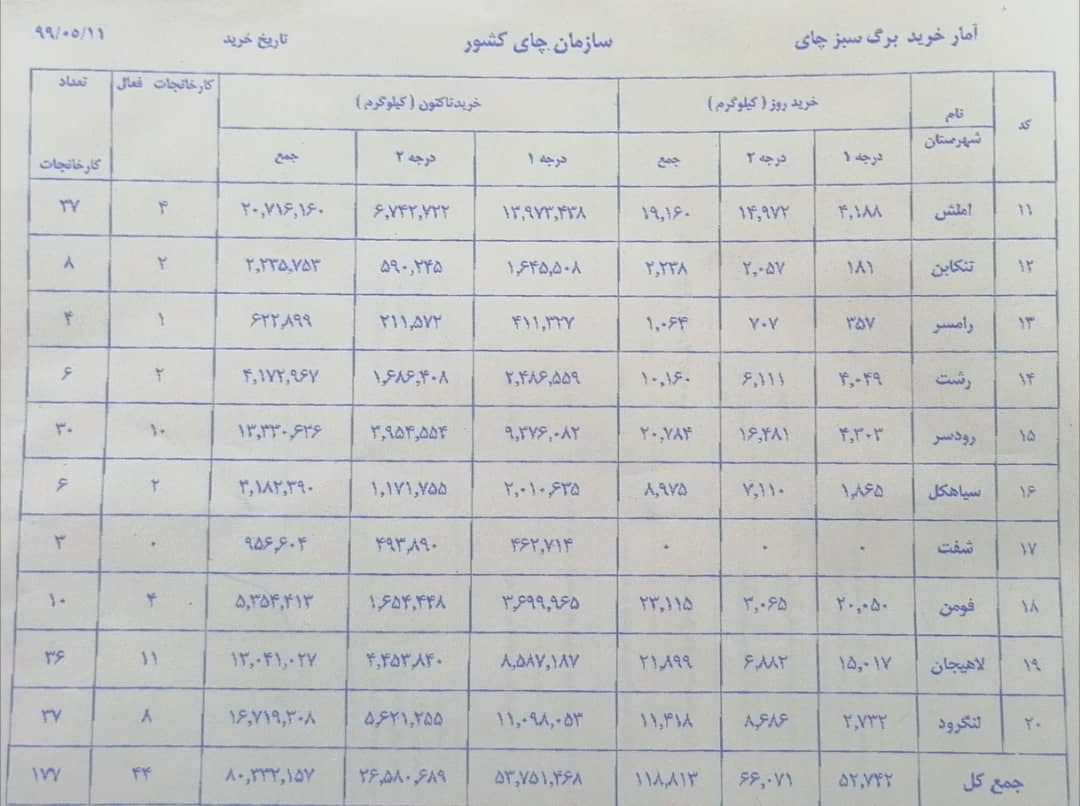 آمار خرید برگ سبز چای سازمان چای کشور تاریخ خرید ۹۹/۰۵/۱۱
کد نام شهرستان خرید روز (کیلوگرم) خریدتاکنون (کیلوگرم) کارخانجات فعال تعداد کارخانجات
درجه ۱ درجه ۲ جمع درجه ۱ درجه ۲ جمع
۱۱ املش ۴,۱۸۸ ۱۴,۹۷۲ ۱۹,۱۶۰ ۱۳,۹۷۳,۴۳۸ ۶,۷۴۲,۷۲۲ ۲۰,۷۱۶,۱۶۰ ۴ ۳۷
۱۲ تنکابن ۱۸۱ ۲,۰۵۷ ۲,۲۳۸ ۱,۶۴۵,۵۰۸ ۵۹۰,۲۴۵ ۲,۲۳۵,۷۵۳ ۲ ۸
۱۳ رامسر ۳۵۷ ۷۰۷ ۱,۰۶۴ ۴۱۱,۳۲۷ ۲۱۱,۵۷۲ ۶۲۲,۸۹۹ ۱ ۴
۱۴ رشت ۴,۰۴۹ ۶,۱۱۱ ۱۰,۱۶۰ ۲,۴۸۶,۵۵۹ ۱,۶۸۶,۴۰۸ ۴,۱۷۲,۹۶۷ ۲ ۶
۱۵ رودسر ۴,۳۰۳ ۱۶,۴۸۱ ۲۰,۷۸۴ ۹,۳۷۶,۰۸۲ ۳,۹۵۴,۵۵۴ ۱۳,۳۳۰,۶۳۶ ۱۰ ۳۰
۱۶ سیاهکل ۱,۸۶۵ ۷,۱۱۰ ۸,۹۷۵ ۲,۰۱۰,۶۳۵ ۱,۱۷۱,۷۵۵ ۳,۱۸۲,۳۹۰ ۲ ۶
۱۷ شفت ۰ ۰ ۰ ۴۶۲,۷۱۴ ۴۹۳,۸۹۰ ۹۵۶,۶۰۴ ۰ ۳
۱۸ فومن ۲۰,۰۵۰ ۳,۰۶۵ ۲۳,۱۱۵ ۳,۶۹۹,۹۶۵ ۱,۶۵۴,۴۴۸ ۵,۳۵۴,۴۱۳ ۴ ۱۰
۱۹ لاهیجان ۱۵,۰۱۷ ۶,۸۸۲ ۲۱,۸۹۹ ۸,۵۸۷,۱۸۷ ۴,۴۵۳,۸۴۰ ۱۳,۰۴۱,۰۲۷ ۱۱ ۳۶
۲۰ لنگرود ۲,۷۳۲ ۸,۶۸۶ ۱۱,۴۱۸ ۱۱,۰۹۸,۰۵۳ ۵,۶۲۱,۲۵۵ ۱۶,۷۱۹,۳۰۸ ۸ ۳۷
جمع کل ۵۲,۷۴۲ ۶۶,۰۷۱ ۱۱۸,۸۱۳ ۵۳,۷۵۱,۴۶۸ ۲۶,۵۸۰,۶۸۹ ۸۰,۳۳۲,۱۵۷ ۴۴ ۱۷۷